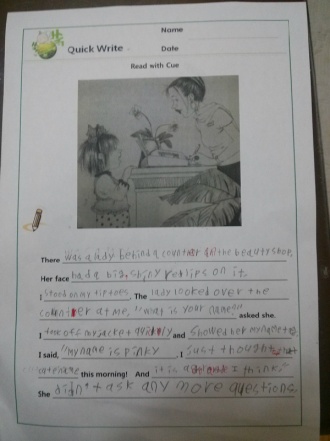 Name
Quick Write
Date
Read with Cue
There was a lady behind a counter in the beauty shop.
Her face had a big, shiny red lips on it.
I stood on my tip toes. The lady looked over the
counter at me, "what is your name" asked she.
I took off my jacket quickly and showed her my
I said, "my name is pinky I just thought that
this morning! And it is a I think.
She didn't ask any more questions